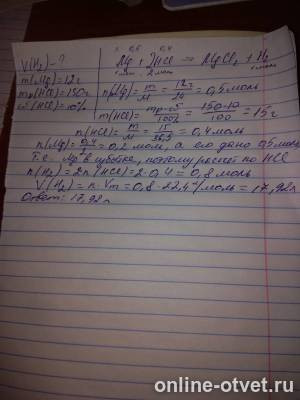 0,4
V(H₂)-?
Mg + 2HCl = MgCl₂ + H₂
m(Mg)=12г
1 моль 2 моль
mр(HCl)=150г
n(Mg) = m/M = 12г/24 = 0,5 моль
ω(HCl)=10%
m(HCl) = mр·ω/100% = 150·10/100 = 15г
n(HCl) = m/M = 15/36,5 = 0,4 моль
n(Mg) = 0,4/2 = 0,2 моль, а его дано 0,5 моль
Т.е. Mg в избытке, поэтому расчет по HCl
n(H₂) = 2n(HCl) = 2·0,4 = 0,8 моль
V(H₂) = n·Vm = 0,8·22,4 /моль = 17,92л
Ответ: 17,92л
online-otvet.ru